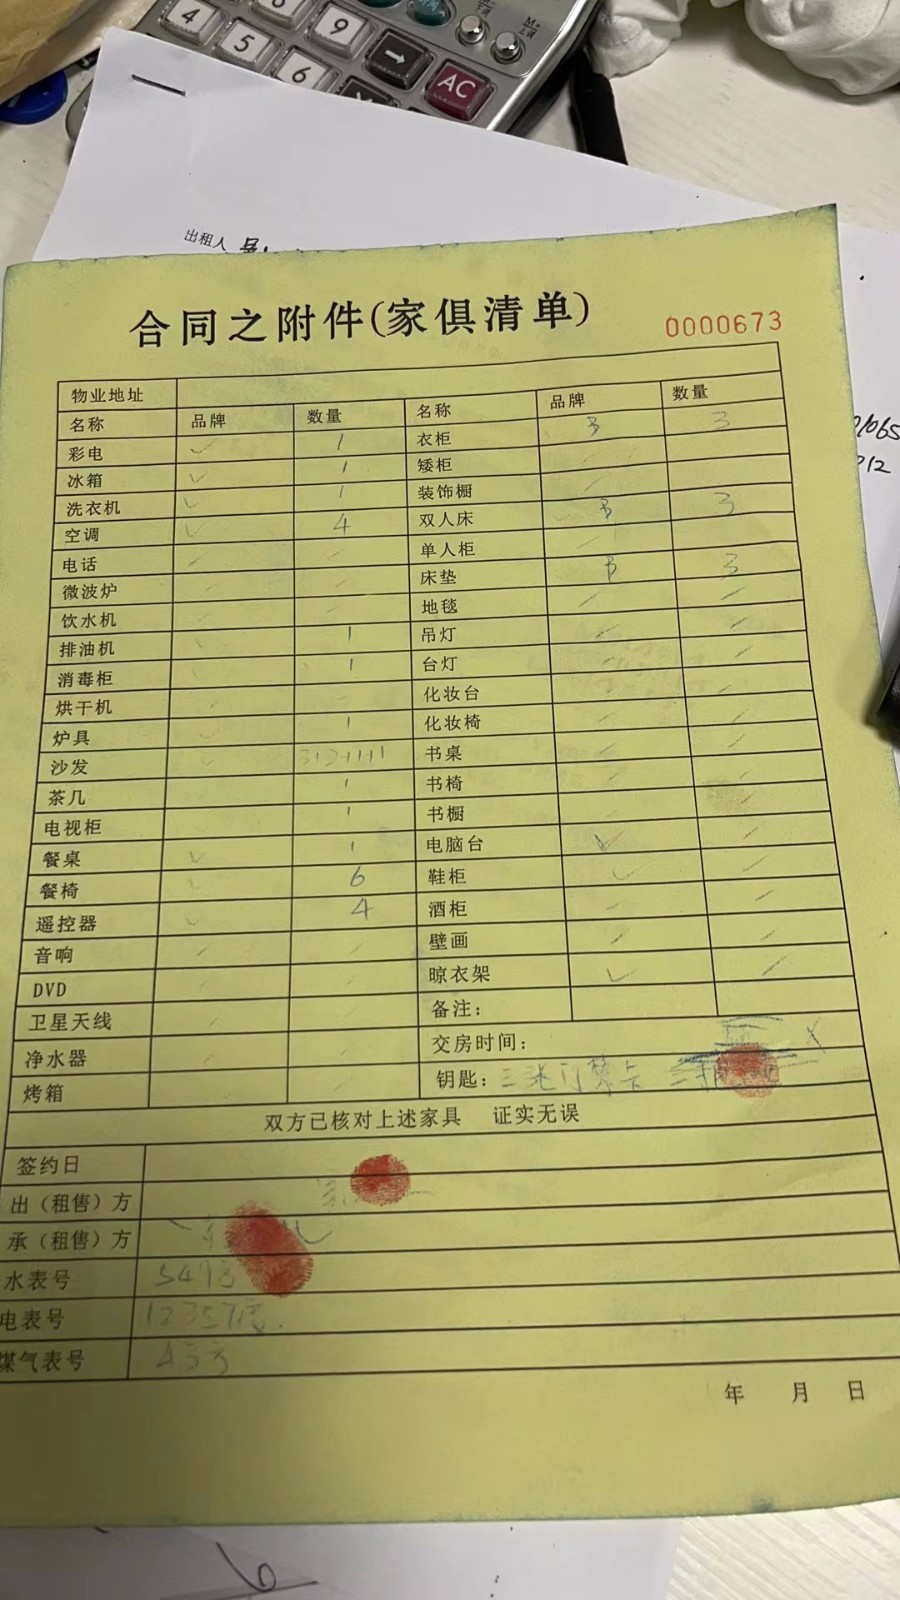 4
5
6
9
→
AC
出租人
合同之附件(家俱清单)
0000673
物业地址
名称 品牌 数量 名称 品牌 数量
彩电 ✓ 1 衣柜 3 3
冰箱 ✓ 1 矮柜
洗衣机 ✓ 1 装饰橱
空调 ✓ 4 双人床 3 3
电话 单人柜
微波炉 床垫 3 3
饮水机 地毯
排油机 1 吊灯
消毒柜 1 台灯
烘干机 化妆台
炉具 1 化妆椅
沙发 书桌
茶几 1 书椅
电视柜 1 书橱
餐桌 ✓ 1 电脑台 ✓
餐椅 6 鞋柜 ✓
遥控器 ✓ 4 酒柜
音响 壁画
DVD 晾衣架 ✓
卫星天线 备注：
净水器 交房时间：
烤箱 钥匙：三张门禁卡
双方已核对上述家具 证实无误
签约日
出（租售）方
承（租售）方
水表号 547方
电表号 12357度.
煤气表号
年 月 日